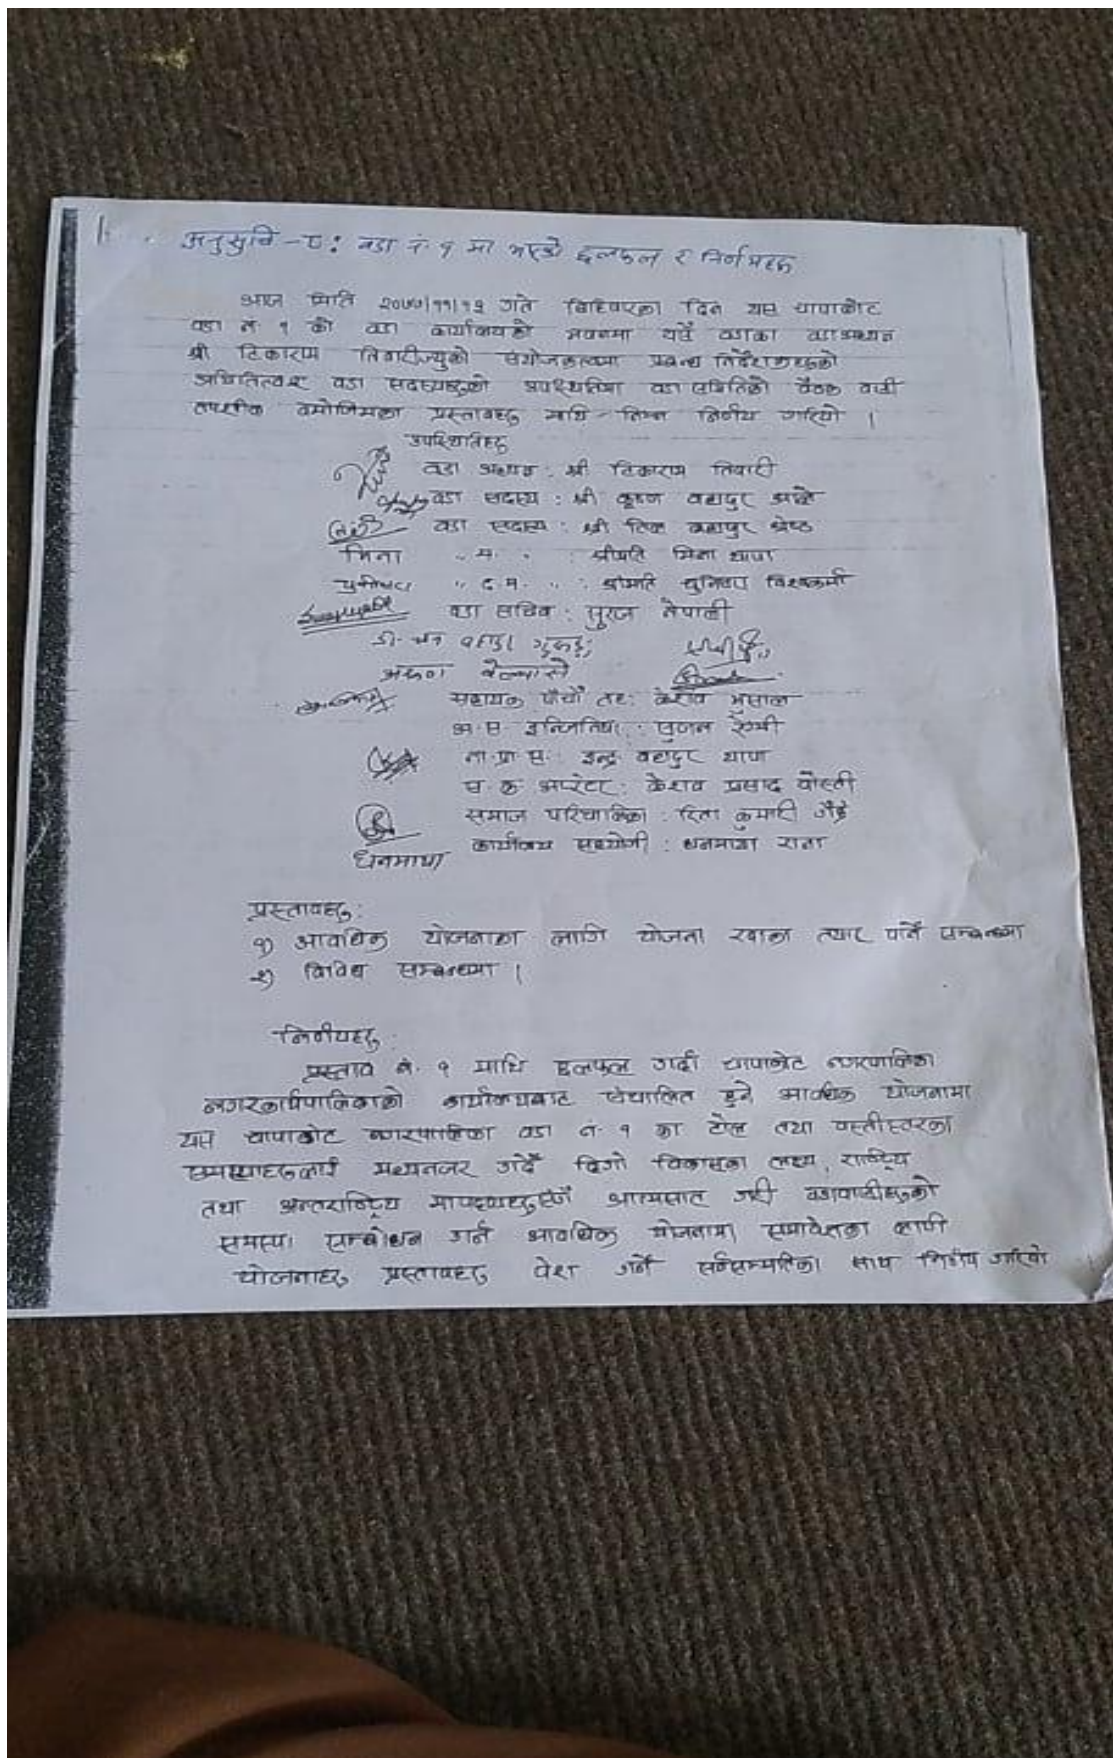 अनुसुचि - ८ : वडा नं. १ मा भएको छलफल र निर्णयहरु
आज मिति २०७७/११/१३ गते बिहिवारका दिन यस चापाकोट
वडा नं १ को वडा कार्यालयको भवनमा यसै वडाका वडाअध्यक्ष
श्री टिकाराम तिवारीज्युको संयोजकत्वमा प्रबन्ध निर्देशकहरुको
वडा सदस्यहरुको उपस्थितिमा वडा समितिको बैठक बसी
तपशील बमोजिमका प्रस्तावहरु माथि निम्न निर्णय गरियो ।
उपस्थितिहरु
वडा अध्यक्ष : श्री टिकाराम तिवारी
वडा सदस्य : श्री कृष्ण बहादुर आले
वडा सदस्य : श्री टिक बहादुर श्रेष्ठ
मिना " म. " : श्रीमति मिना थापा
" द.म. " : श्रीमति चुनिमाया विश्वकर्मा
वडा सचिव : सुरज नेपाली
बहादुर
सहायक पाँचौं तह : केशव भुसाल
अ.स. इन्जिनियर : सुजन रेग्मी
ना.प्रा.स. : इन्द्र बहादुर थापा
स.क. अपरेटर : केशव प्रसाद
समाज परिचालिका : रिता कुमारी गैह्रे
धनमाया कार्यालय सहयोगी : धनमाया राना
प्रस्तावहरु :
१) आवधिक योजनाका लागि योजना खाका तयार पार्ने सम्बन्धमा
२) विविध सम्बन्धमा ।
निर्णयहरु :
प्रस्ताव नं. १ माथि छलफल गर्दा चापाकोट नगरपालिका
नगरकार्यपालिकाको कार्यालयबाट संचालित हुने आवधिक योजनामा
यस चापाकोट नगरपालिका वडा नं. १ का टोल तथा वस्तीस्तरका
समस्याहरुलाई मध्यनजर गर्दै दिगो विकासका लक्ष्य, राष्ट्रिय
तथा अन्तराष्ट्रिय मापदण्डहरु आत्मसात गरी वडावासीहरुको
समस्या सम्बोधन गर्न आवधिक योजनामा समावेशका लागी
योजनाहरु प्रस्तावहरु पेश गर्ने सर्वसम्मतिका साथ निर्णय गरियो